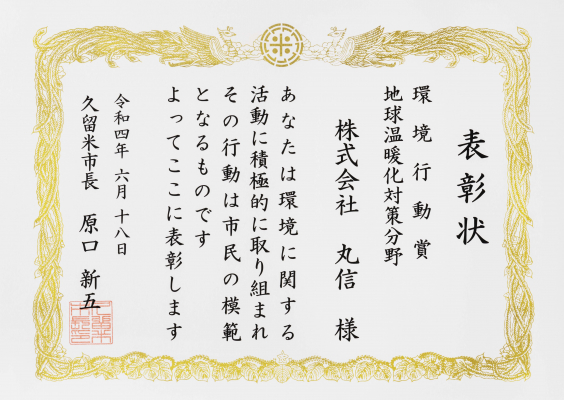 表彰状
環境行動賞
地球温暖化対策分野
株式会社 丸信 様
あなたは環境に関する
活動に積極的に取り組まれ
その行動は市民の模範
となるものです
よってここに表彰します
令和四年 六月 十八日
久留米市長 原口 新五